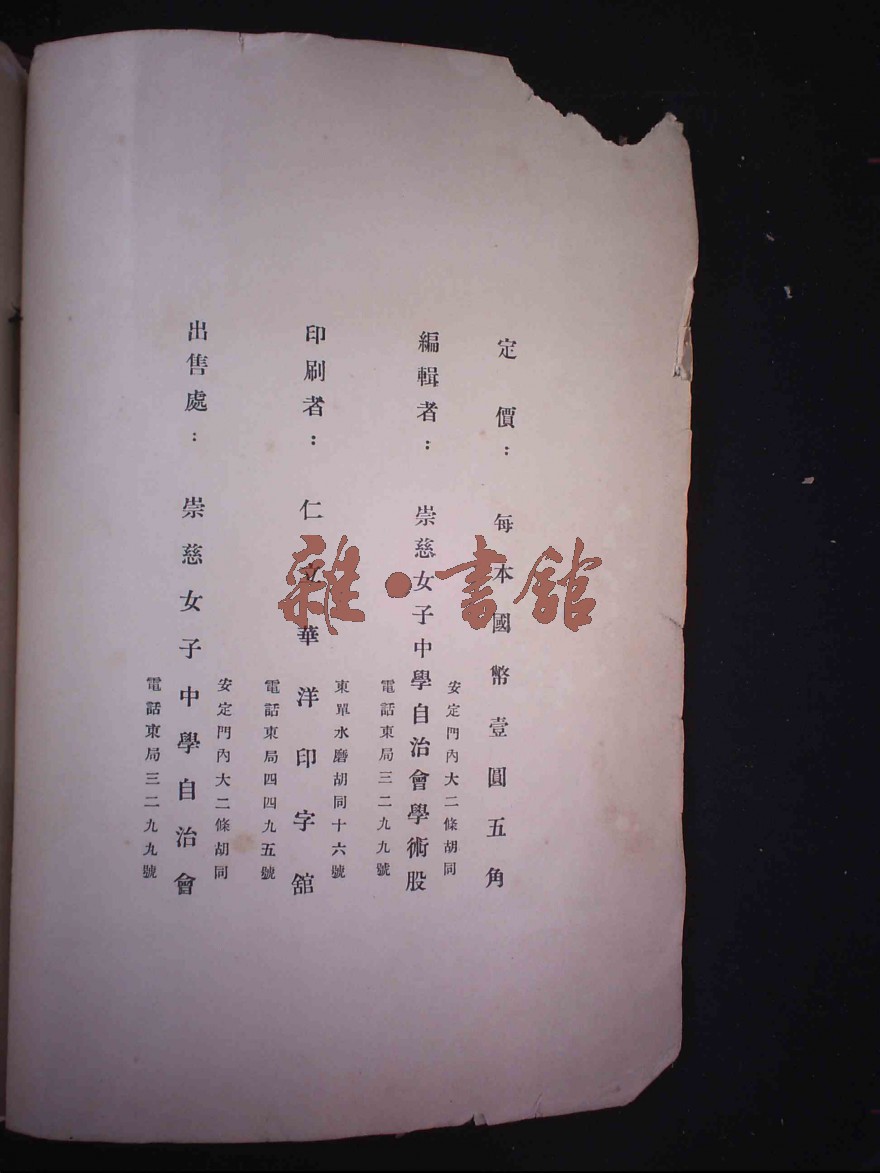 定價：每本國幣壹圓五角
編輯者：崇慈女子中學自治會學術股
安定門內大二條胡同
電話東局三二九九號
印刷者：仁文華洋印字舘
東單水磨胡同十六號
電話東局四四九五號
出售處：崇慈女子中學自治會
安定門內大二條胡同
電話東局三二九九號
雜·書舘